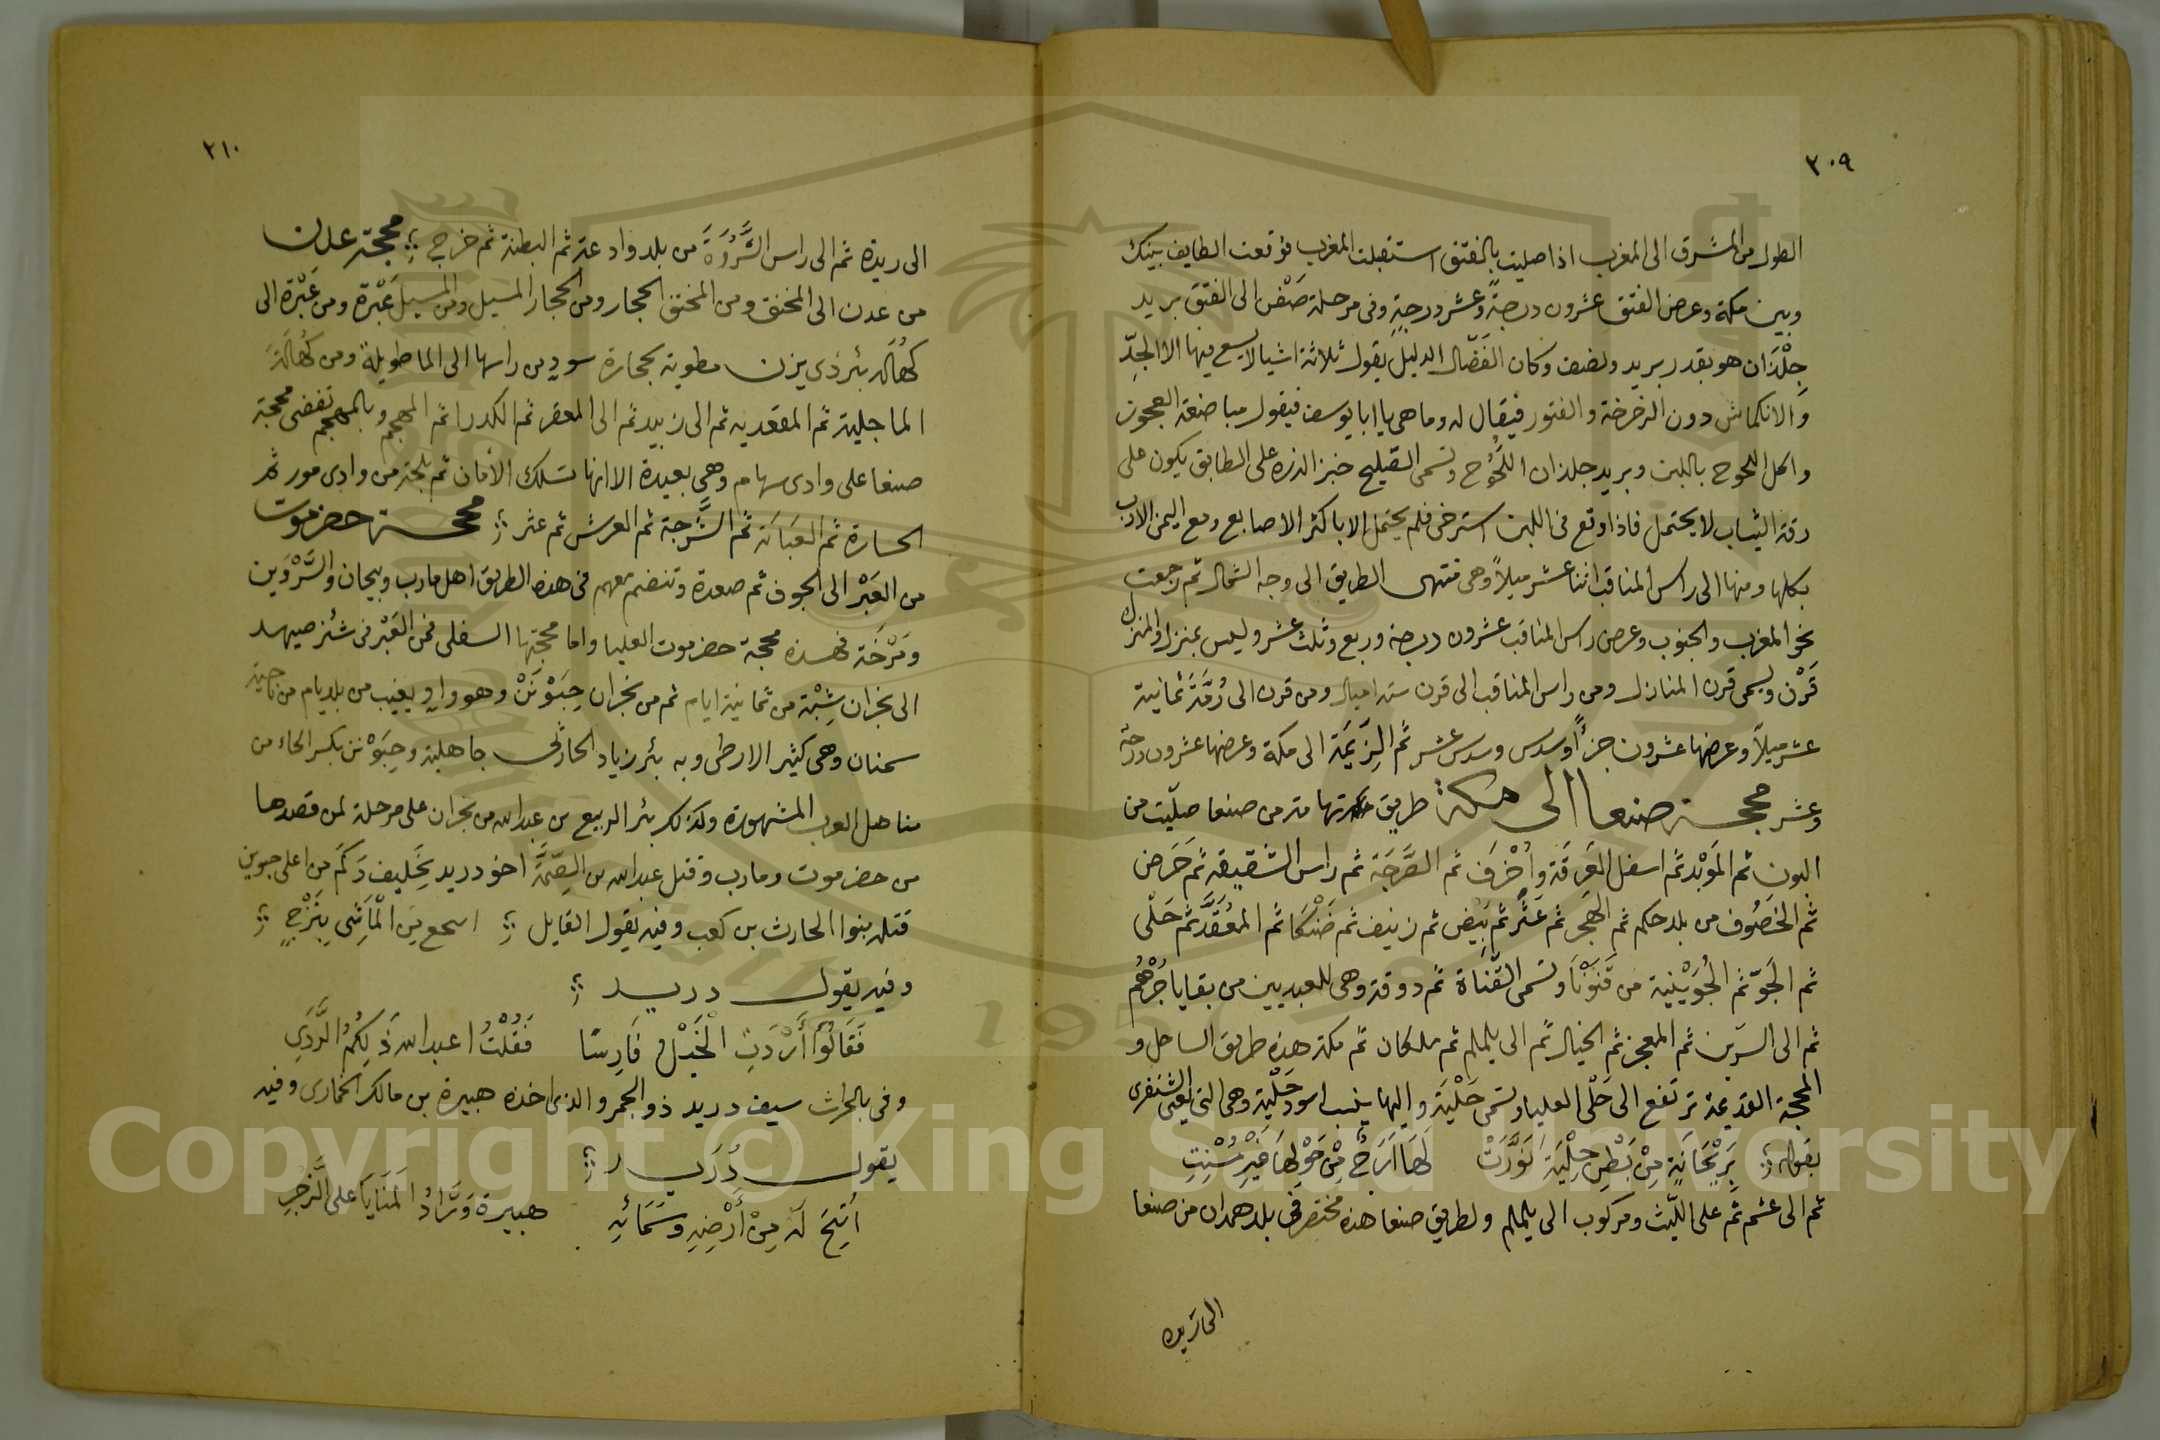 ٣٠٩
الطول من المشرق الى المغرب اذا صليت بالفتق استقبلت المغرب فوقعت الطايف بينك
وبين مكة وعرض الفتق عشرون درجة وعشر درجة وفى مرحلة صَفْن الى الفتق بريد
جِلْذان هو بقدر بريد ونصف وكان الفَصّال الدليل يقول ثلاثة اشيا لا يسع فيها الا الجِدّ
وَالانكماش دون الزخرخة والفتور فيقال له وما هى يا ابا يوسف فيقول مباضعة العجوز
واكل اللحوح باللبن وبريد جلذان اللحُوح وتسمى القليح خبز الذره على الطابق يكون على
رقة الثياب لا يحتمل فاذا وقع فى اللبن استرخى فلم يحتمل الا باكثر الاصابع ومع اليمن الادب
بكلها ومنها الى راس المناقب اثنا عشر ميلاً وهى منتهى الطريق الى وجه الشمال ثم رجعت
نحو المغرب والجنوب وعرض راس المناقب عشرون درجة وربع وثلث عشر وليس بمنزل والمنزل
قَرْن ويسمى قرن المنازل ومن راس المناقب الى قرن ستة اميال ومن قرن الى رُمَّةَ ثمانية
عشر ميلاً وعرضها عشرون جزأً وسدس وسدس عشر ثم الزَيْمَة الى مكة وعرضها عشرون درجة
وعشر محجة صنعا الى مكة طريق تهامة من صنعا صلّيت من
البون ثم المَوْبد ثم اسفل العَرقَة وأخْرَف ثم الصَّرحَة ثم راس الشقيقة ثم حَرَض
ثم الخَصُوف من بلد حكم ثم الهَجَر ثم عَثَّر ثم بَيْض ثم زنيف ثم ضَنْكَا ثم المعُقَّد ثم حَلْى
ثم الجَوّ ثم الجُوَيْنية من قَنَوْنَا وتسمى القَنَاة ثم دوقة وهى للعبديين من بقايا جُرْهُم
ثم الى السرّين ثم المعجز ثم الخيال ثم الى يلملم ثم ملكان ثم مكة هذه طريق الساحل و
المحجة القديمة ترتفع الى حَلْى العليا وتسمى حَلْيَة واليها ينسب اسود حَلْيَة وهى التى يعنى الشنفرى
بقوله بِرَيْحَانَةٍ مِنْ بَطْنِ حِلْيَةَ نَوَّرَتْ لَهَا اَرَجٌ مِنْ حَوْلِهَا غَيْر مُسْنِتِ
ثم الى عشم ثم على اللّيث ومركوب الى يلملم ولطريق صنعا هذه مختصر فى بلد همدان من صنعا
الى ريده
٣١٠
الى ريدة ثم الى راس الشَّرْوَةَ من بلد وادعة ثم البطنة ثم خرج محجة عدن
من عدن الى المخنق ومن المخنق الحجار ومن الحجار المسيل ومن المسيل عَبْرَة ومن عَبْرَة الى
كَهَالَه بئر ذى يزن مطوية بحجارة سود من راسها الى الما طويلة ومن كُهَالَةَ
الماجلية ثم المقعدية ثم الى زبيد ثم الى المعقر ثم الكدرا ثم المهجم وبالمهجم تفضى محجة
صنعا على وادى سهام وهى بعيدة الا انها تسلك الأمان ثم بلجة من وادى مور ثم
الحسارة ثم العَبَايَة ثم الشَّرجة ثم العرش ثم عثر محجة حضرموت
من العَبْر الى الجوف ثم صعدة وتنضم معهم فى هذه الطريق اهل مارب وبيحان والسَّرْوَين
ومَرْخَة فهذه محجة حضرموت العليا واما محجتها السفلى فمن العَبْر فى شئز صيهد
الى نجران شِبْه من ثمانية ايام ثم من نجران حِبَوْنَنْ وهو وادٍ يغيب من بلد يام من ناحية
سمنان وهى كثير الارطى وبه بئر زياد الحارثى جاهلية وحِبَوْنن بكسر الحاء من
مناهل العرب المشهورة وكذلك بئر الربيع بن عبد الله من نجران على مرحلة لمن قصدها
من حضرموت ومارب وقتل عبد الله بن الصِمَّة اخو دريد بِخَليف دَكَم من اعلى حبونن
قتله بنوا الحارث بن كعب وفيه يقول القايل اسحع مِن الْمَاشِى بِتَرْجٍ
وفيه يقول دريد
فَقَالُوا أَرْدَتِ الْخَيْلُ فَارِسًا فَقُلْتُ اعبد الله ذَلِكُمُ الرَّدَىِ
وفى بالحارث سيف دريد ذو الجمر والذى اخذه هبيرة بن مالك الخمارى وفيه
يقول دُرَيد
أُتِيْحَ لَهُ مِنْ أَرْضِهِ وَسَمَائِهِ هبيرة وَرَّادُ الْمَنَايَا على الزَّجْرِ
Copyright © King Saud University